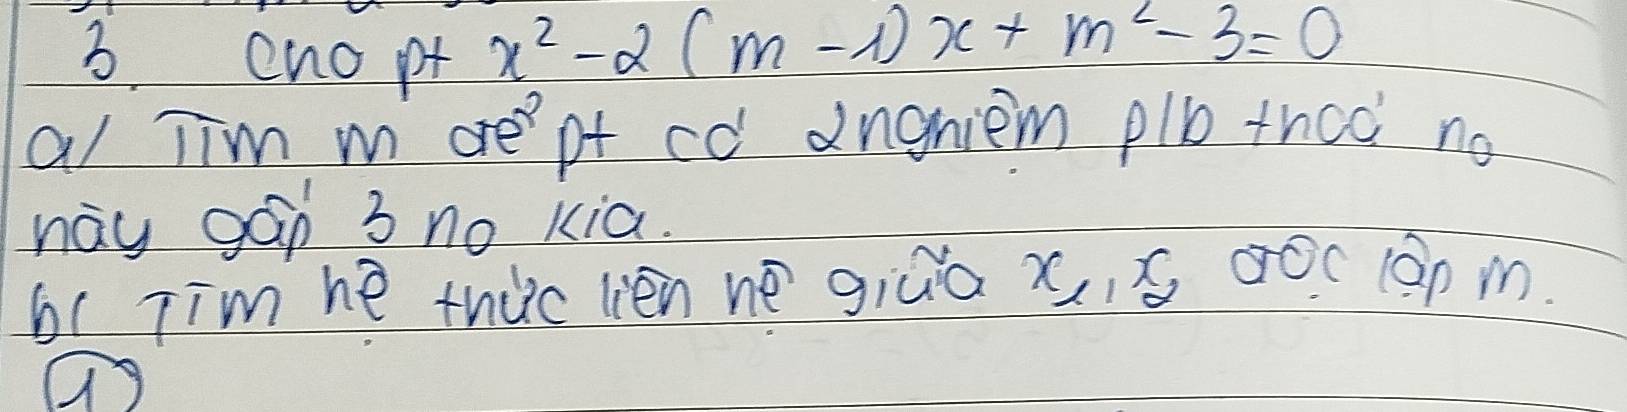 3. Cho pt x² - 2(m - 1)x + m² - 3 = 0
a/ Tìm m để pt có 2 nghiệm p/b thoả no
này gấp 3 no kia.
b/ Tìm hệ thức liên hệ giữa x₁, x₂ độc lập m.
①